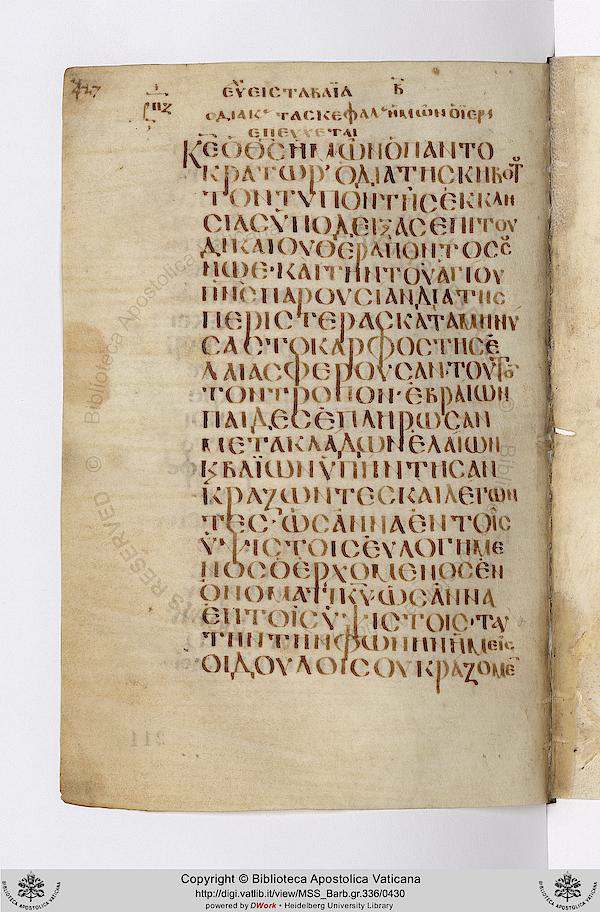 427
ΕΥ ΕΙΣ ΤΑ ΒΑΪΑ Β
ΡΠΖ
Ο ΔΙΑΚ ΤΑΣ ΚΕΦΑΛ ΗΜΩΝ Ο ΙΕΡ
ΕΠΕΥΧΕΤΑΙ
ΚΕ Ο ΘΣ ΗΜΩΝ Ο ΠΑΝΤΟ
ΚΡΑΤΩΡ· Ο ΔΙΑ ΤΗΣ ΚΗΒΟΥΤ
ΤΟΝ ΤΥΠΟΝ ΤΗΣ ΕΚΚΛΗ
ΣΙΑΣ ΥΠΟΔΕΙΞΑΣ ΕΠΙ ΤΟΥ
ΔΙΚΑΙΟΥ ΘΕΡΑΠΟΝΤΟΣ ΣΟΥ
ΝΩΕ· ΚΑΙ ΤΗΝ ΤΟΥ ΑΓΙΟΥ
ΠΝΣ ΠΑΡΟΥΣΙΑΝ ΔΙΑ ΤΗΣ
ΠΕΡΙΣΤΕΡΑΣ ΚΑΤΑΜΗΝΥ
ΣΑΣ ΤΟ ΚΑΡΦΟΣ ΤΗΣ Ε
ΛΑΙΑΣ ΦΕΡΟΥΣΑΝ· ΤΟΥΤΟ
ΤΟΝ ΤΡΟΠΟΝ· ΕΒΡΑΙΩΝ
ΠΑΙΔΕΣ ΕΠΛΗΡΩΣΑΝ
ΜΕΤΑ ΚΛΑΔΩΝ ΕΛΑΙΩΝ
Κ ΒΑΪΩΝ ΥΠΗΝΤΗΣΑΝ
ΚΡΑΖΩΝΤΕΣ ΚΑΙ ΛΕΓΩΝ
ΤΕΣ· ΩΣΑΝΝΑ ΕΝ ΤΟΙΣ
ΥΨΙΣΤΟΙΣ ΕΥΛΟΓΗΜΕ
ΝΟΣ Ο ΕΡΧΟΜΕΝΟΣ ΕΝ
ΟΝΟΜΑΤΙ ΚΥ ΩΣΑΝΝΑ
ΕΝ ΤΟΙΣ ΥΨΙΣΤΟΙΣ· ΤΑΥ
ΤΗΝ ΤΗΝ ΦΩΝΗΝ ΗΜΕΙΣ
ΟΙ ΔΟΥΛΟΙ ΣΟΥ ΚΡΑΖΟΜΕ
Copyright © Biblioteca Apostolica Vaticana
http://digi.vatlib.it/view/MSS_Barb.gr.336/0430
powered by DWork • Heidelberg University Library